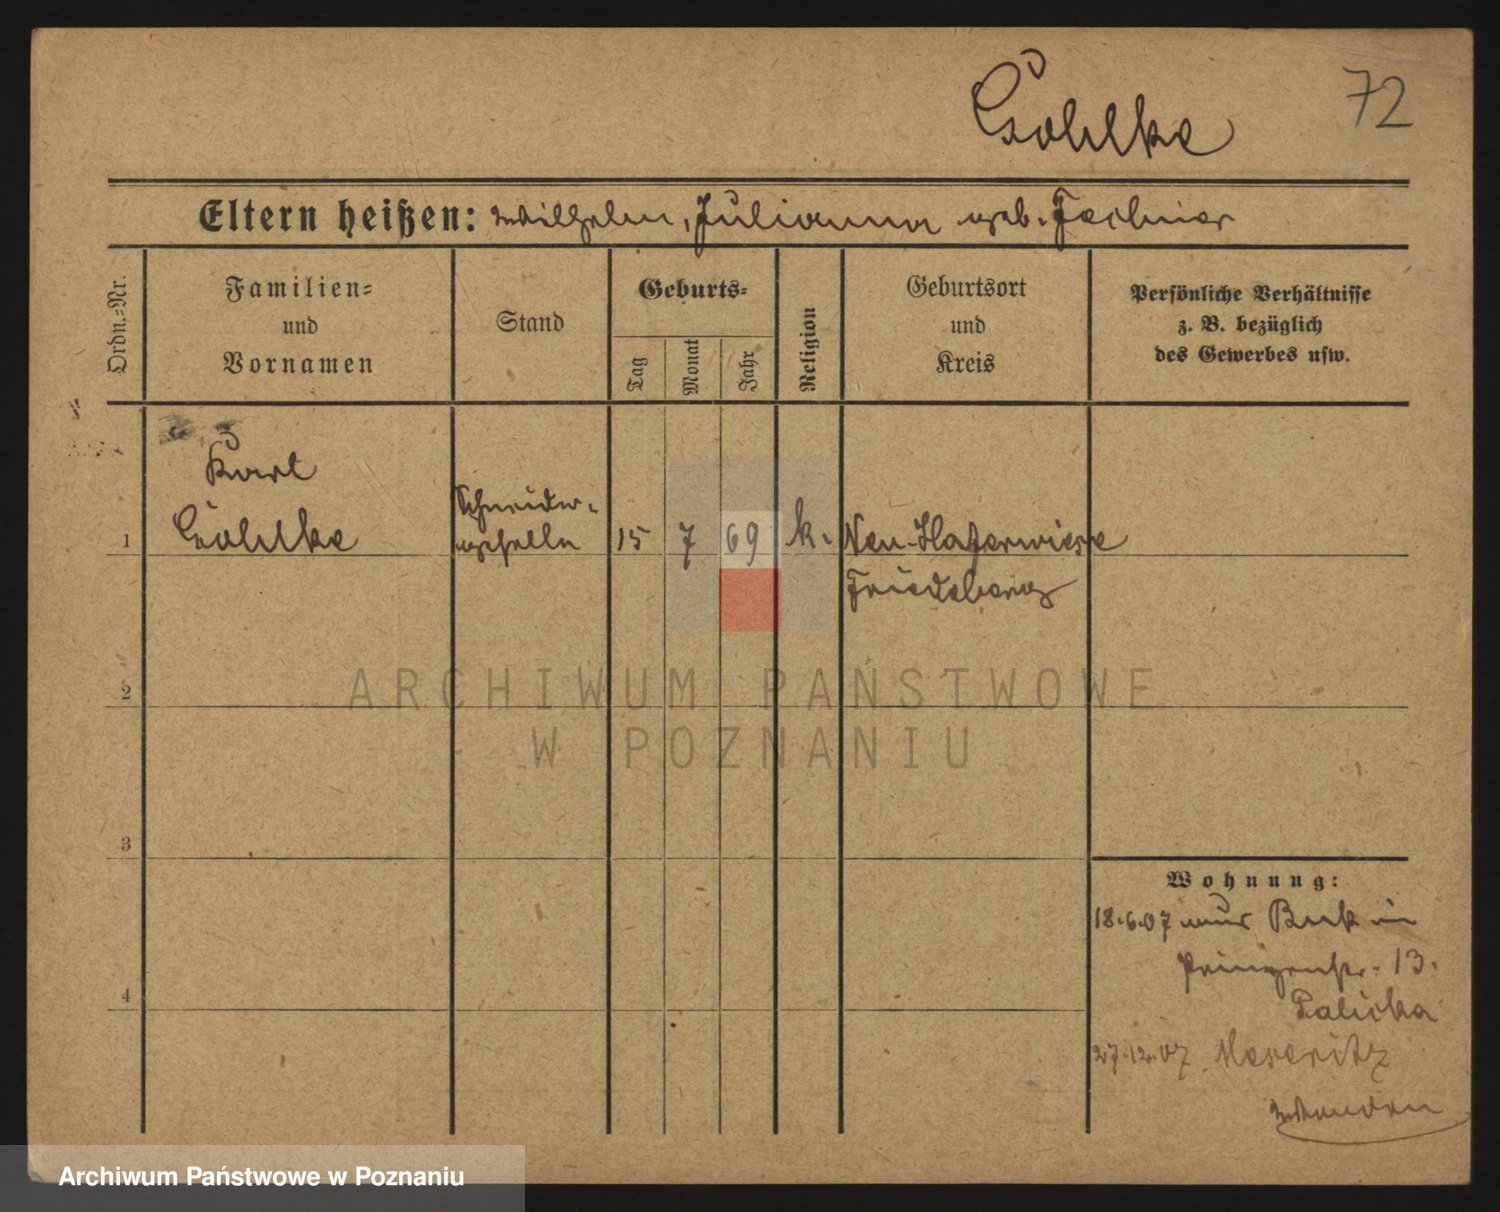 Gohlke
72
Eltern heißen: Wilhelm, Julianna geb. Fechner
Ordn.-Nr.
Familien-
und
Vornamen
Stand
Geburts-
Tag
Monat
Jahr
Religion
Geburtsort
und
Kreis
Persönliche Verhältnisse
z. B. bezüglich
des Gewerbes usw.
Karl
Gohlke
Schneider-
geselle
1
15 7 69 k. Neu-Haferwiese
Friedeberg
2
3
4
Wohnung:
18.6.07 aus Buk in
Prinzenstr. 13.
Palicka
27.12.07 Meseritz
ARCHIWUM PAŃSTWOWE
W POZNANIU
Archiwum Państwowe w Poznaniu